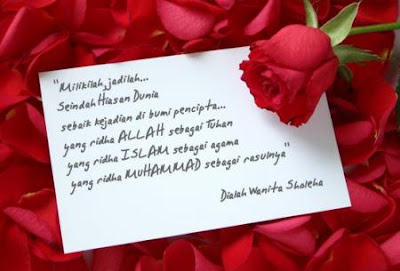 "Milikilah, jadilah...
Seindah Hiasan Dunia
sebaik kejadian di bumi pencipta...
yang ridha ALLAH sebagai Tuhan
yang ridha ISLAM sebagai agama
yang ridha MUHAMMAD sebagai rasulnya"
Dialah Wanita Sholeha